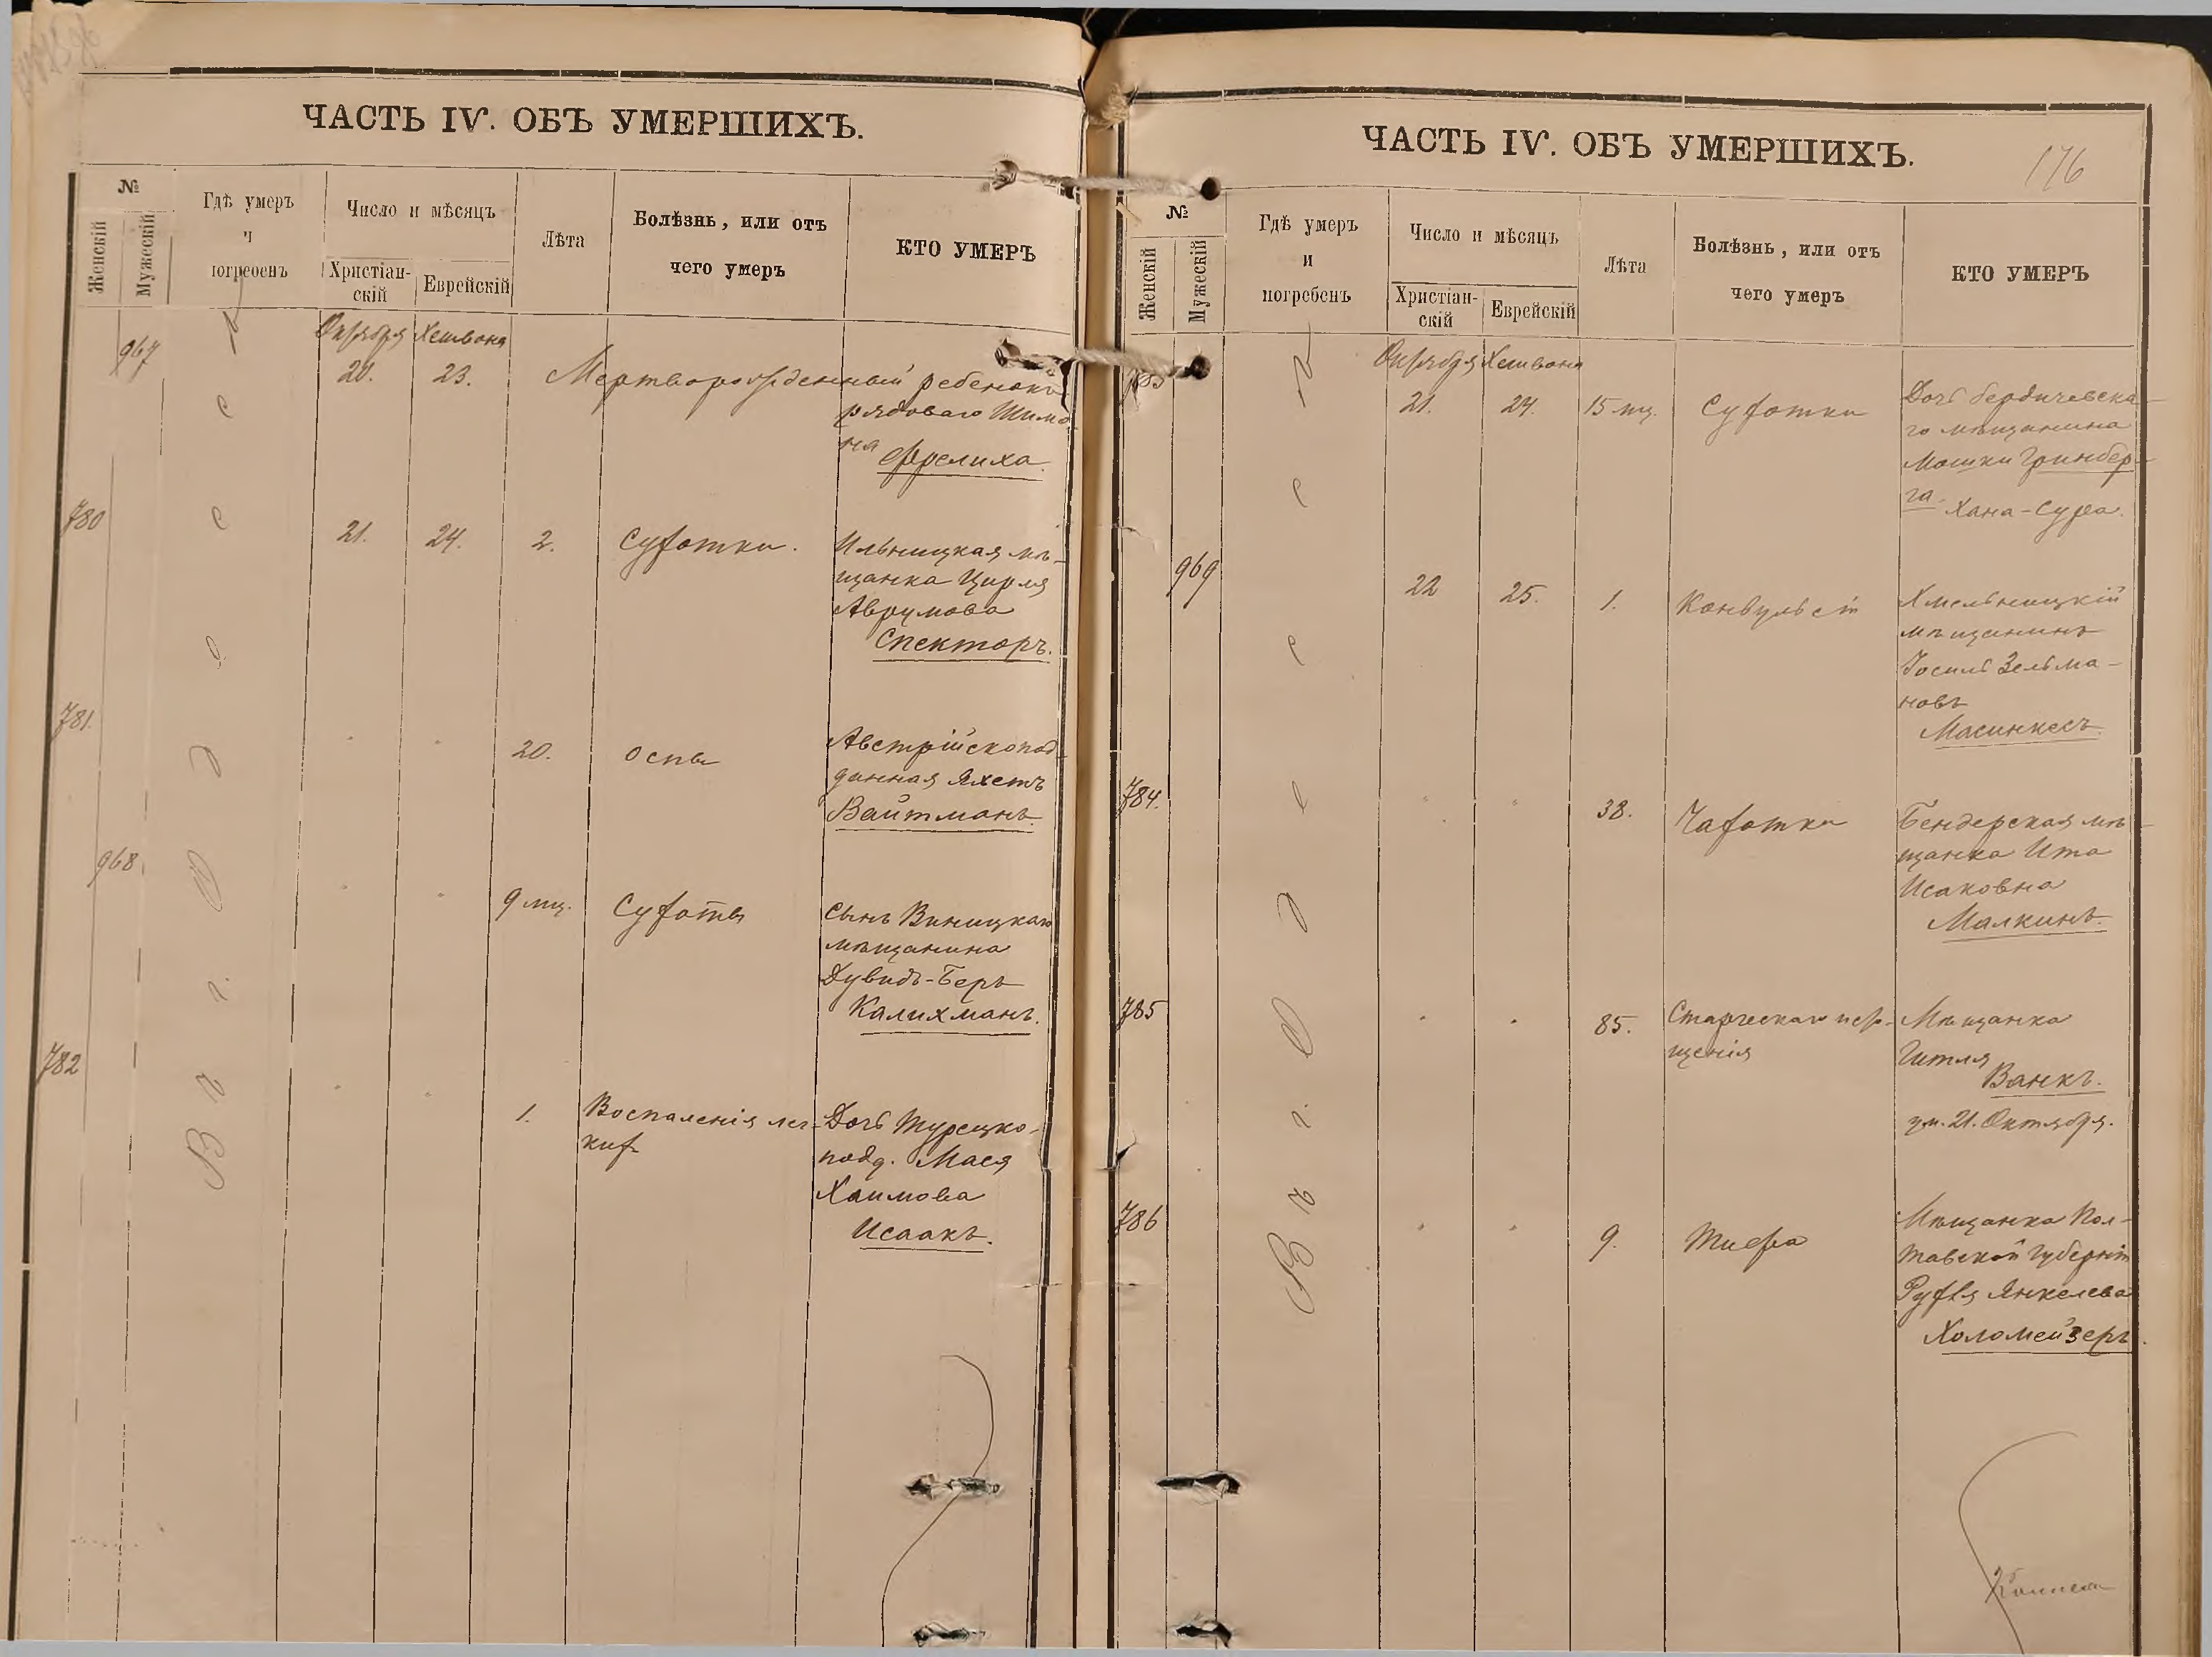 ЧАСТЬ IV. ОБЪ УМЕРШИХЪ.
№
Женскій
Мужескій
Гдѣ умеръ
и
погребенъ
Число и мѣсяцъ
Христіан-
скій
Еврейскій
Лѣта
Болѣзнь, или отъ
чего умеръ
КТО УМЕРЪ
Въ г. Одессѣ
Октября Хешвона
967
20. 23. Мертворожденный ребенокъ
рядоваго Шимо-
на Фрелиха.
780
21. 24. 2. Сухотки.
Ильницкая мѣ-
щанка Цирля
Аврумова
Спекторъ.
781.
" " 20. Оспы
Австрійскопод-
данная Яхетъ
Вайтманъ.
968
" " 9 мц. Сухоты
Сынъ Виницкаго
мѣщанина
Дувидъ-Беръ
Калихманъ.
782
" " 1. Воспаленія лег-
кихъ
Дочь Турецко-
подд. Мася
Хаимова
Исаакъ.
ЧАСТЬ IV. ОБЪ УМЕРШИХЪ.
176
№
Женскій
Мужескій
Гдѣ умеръ
и
погребенъ
Число и мѣсяцъ
Христіан-
скій
Еврейскій
Лѣта
Болѣзнь, или отъ
чего умеръ
КТО УМЕРЪ
Въ г. Одессѣ
Октября Хешвона
783
21. 24. 15 мц. Сухотки
Дочь бердичевска-
го мѣщанина
Мошки Гринбер-
га Хана-Сура.
969
22 25. 1. Конвульсіи
Хмельницкій
мѣщанинъ
Іосиль Зельма-
новъ
Масинкесъ.
784.
" " 38. Чахотки
Бендерская мѣ-
щанка Ита
Исаковна
Малкинъ.
785
" " 85. Старческаго исто-
щенія
Мѣщанка
Гитля
Ванкъ.
ум. 21. Октября.
786
" " 9. Тифа
Мѣщанка Пол-
тавской губерніи
Рухля Янкелева
Холомейзеръ.